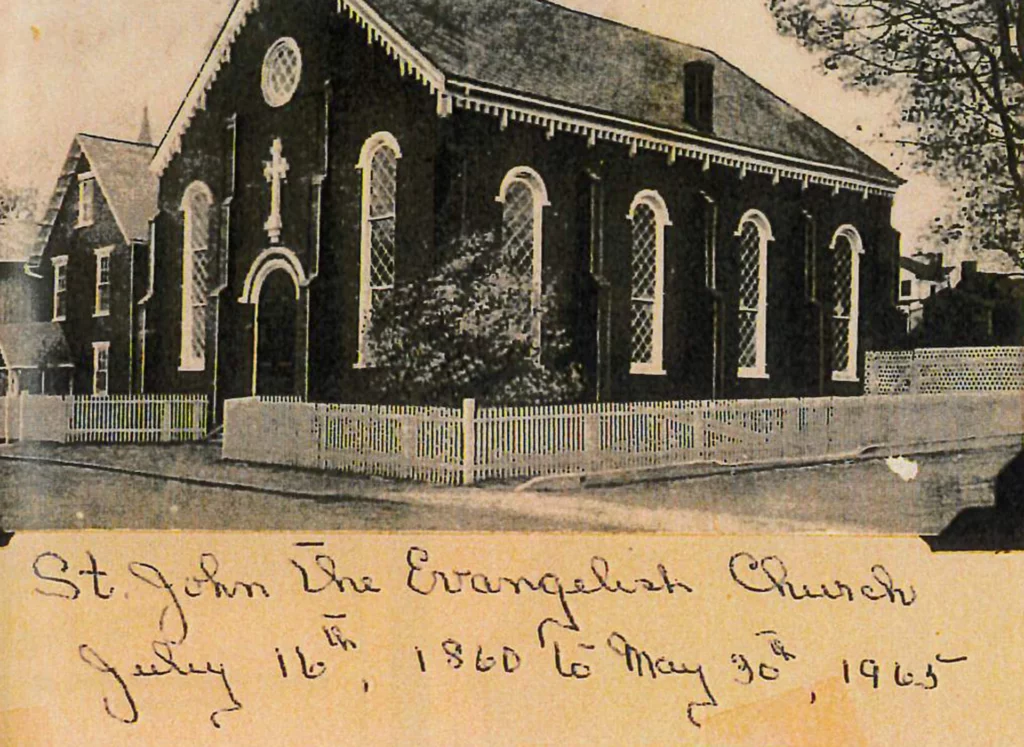 St. John The Evangelist Church
July 16th, 1860 to May 30th, 1965